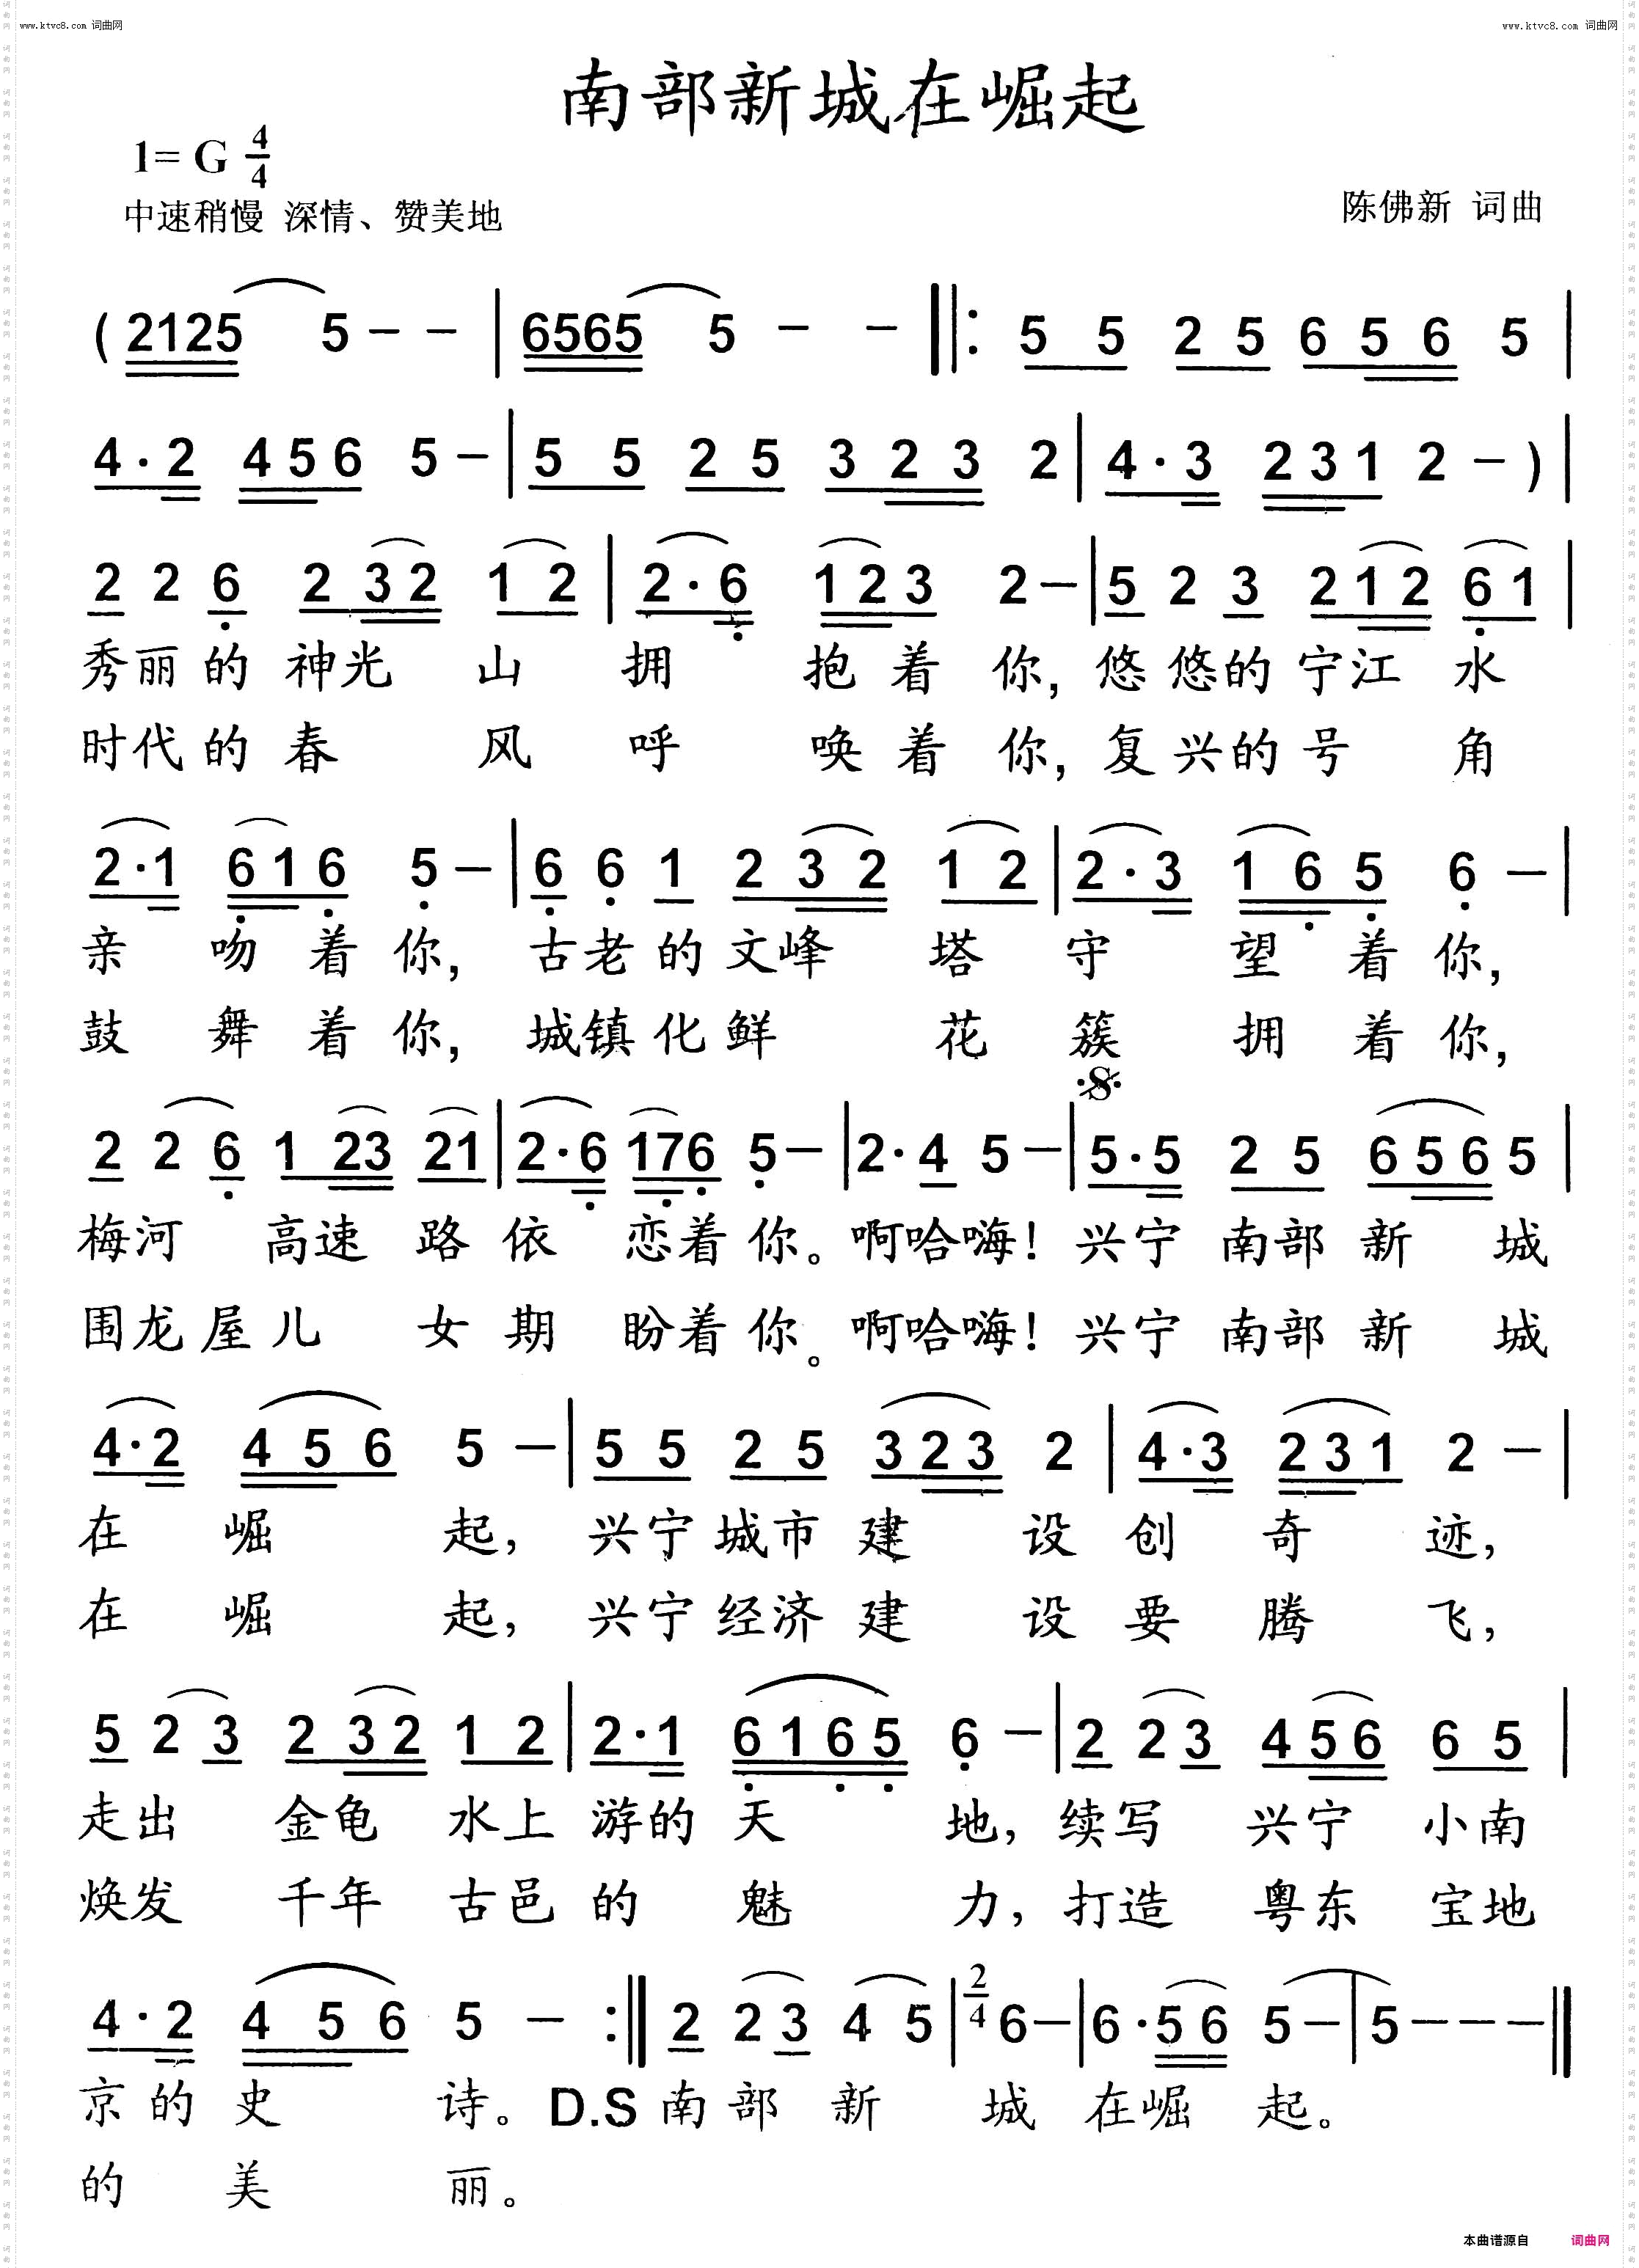 www.ktvc8.com 词曲网
www.ktvc8.com 词曲网
南部新城在崛起
1= G 4/4
中速稍慢 深情、赞美地
陈佛新 词曲
( 2125 5 - - | 6565 5 - - ‖: 5 5 2 5 6 5 6 5 |
4·2 4 5 6 5 - | 5 5 2 5 3 2 3 2 | 4·3 2 3 1 2 - ) |
2 2 6 2 3 2 1 2 | 2·6 1 2 3 2 - | 5 2 3 2 1 2 6 1 |
秀丽的神光 山 拥 抱着你,悠悠的宁江 水
时代的春 风 呼 唤着你,复兴的号 角
2·1 6 1 6 5 - | 6 6 1 2 3 2 1 2 | 2·3 1 6 5 6 - |
亲 吻着你,古老的文峰 塔 守 望着你,
鼓 舞着你,城镇化鲜 花 簇 拥着你,
2 2 6 1 23 21 | 2·6 176 5 - | 2·4 5 - | 5·5 2 5 6 5 6 5 |
梅河 高速路依 恋着你。啊哈嗨!兴宁南部新 城
围龙屋儿 女期 盼着你。啊哈嗨!兴宁南部新 城
4·2 4 5 6 5 - | 5 5 2 5 3 2 3 2 | 4·3 2 3 1 2 - |
在 崛 起,兴宁城市建 设创 奇 迹,
在 崛 起,兴宁经济建 设要 腾 飞,
5 2 3 2 3 2 1 2 | 2·1 6 1 6 5 6 - | 2 2 3 4 5 6 6 5 |
走出 金龟 水上游的天 地,续写 兴宁 小南
焕发 千年 古邑的 魅 力,打造 粤东 宝地
4·2 4 5 6 5 - :‖ 2 2 3 4 5 | 2/4 6 - | 6·5 6 5 - | 5 - - - ‖
京的史 诗。D.S 南部新 城 在崛 起。
的 美 丽。
本曲谱源自 词曲网